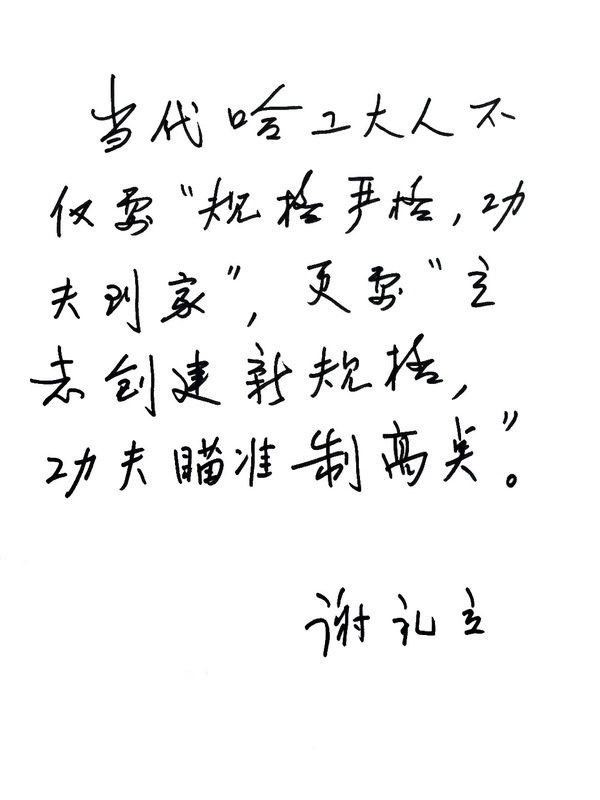 当代哈工大人不
仅要“规格严格，功
夫到家”，更要“立
志创建新规格，
功夫瞄准制高点”。
谢礼立